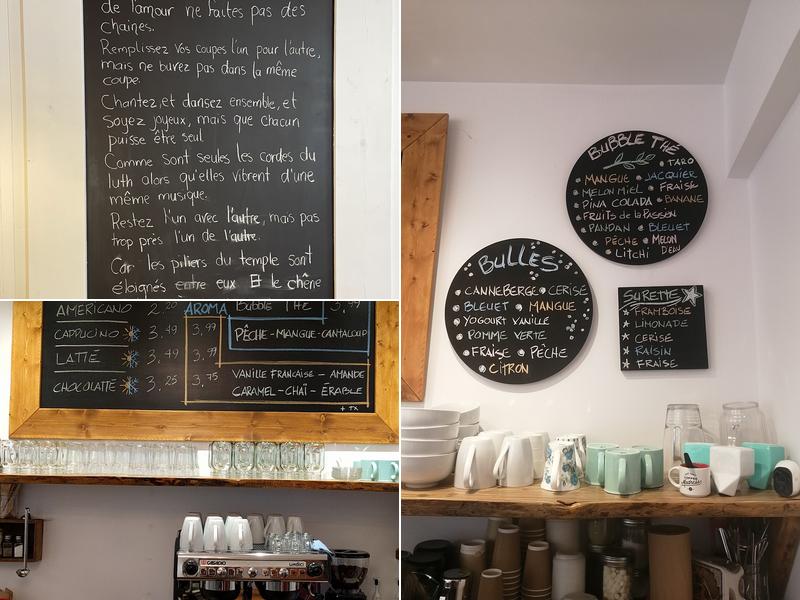 de l'amour ne faites pas des
chaînes.
Remplissez vos coupes l'un pour l'autre,
mais ne buvez pas dans la même
coupe.
Chantez, et dansez ensemble, et
soyez joyeux, mais que chacun
puisse être seul
Comme sont seules les cordes du
luth alors qu'elles vibrent d'une
même musique.
Restez l'un avec l'autre, mais pas
trop près l'un de l'autre.
Car les piliers du temple sont
éloignés entre eux Et le chêne
AMERICANO
CAPPUCINO 3,49
LATTÉ 3,49
CHOCOLATTÉ 3,25
AROMA
3,99
3,99
3,75
Bubble THÉ 3,99
PÊCHE-MANGUE-CANTALOUP
VANILLE FRANÇAISE - AMANDE
CARAMEL-CHAÏ-ÉRABLE
+ TX
GASADIO
UNDICI
BULLES
CANNEBERGE CERISE
BLEUET MANGUE
YOGOURT VANILLE
POMME VERTE
FRAISE PÊCHE
CITRON
BUBBLE THÉ
TARO
MANGUE JACQUIER
MELON MIEL FRAISE
PINA COLADA BANANE
FRUITS de la PASSION
PANDAN BLEUET
PÊCHE MELON
LITCHI D'EAU
SURETTE
FRAMBOISE
LIMONADE
CERISE
RAISIN
FRAISE